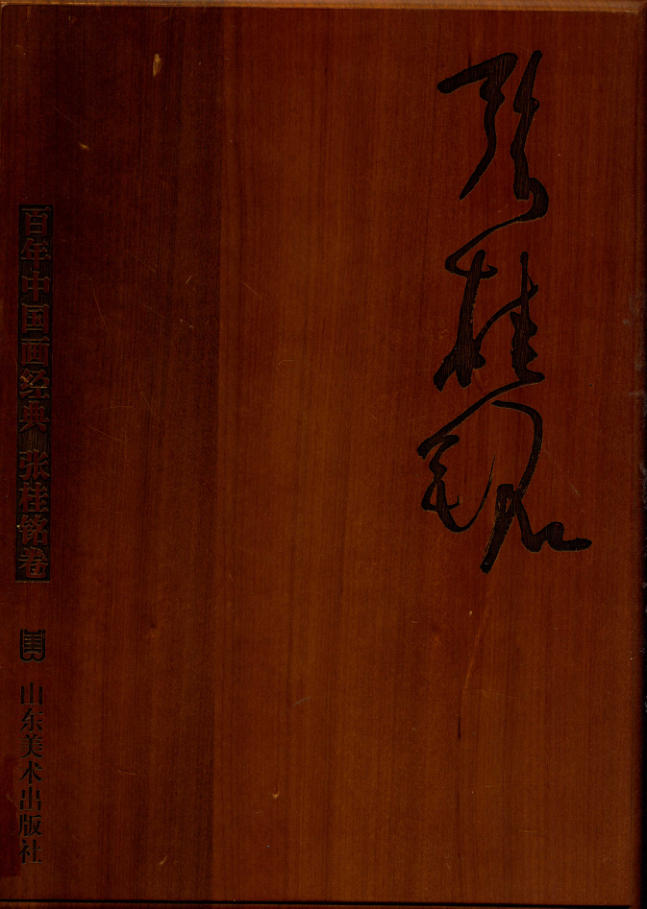 张桂铭
百年中国画经典 张桂铭卷
山东美术出版社